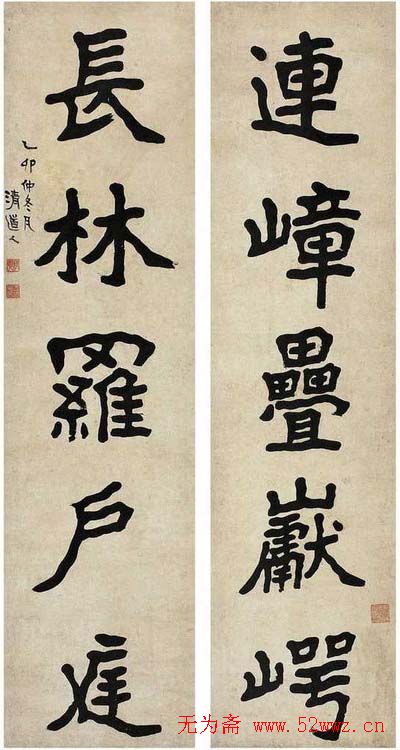 連嶂疊巘崿
長林羅戶庭
乙卯仲冬月
清道人
无为斋 www.52wwz.cn